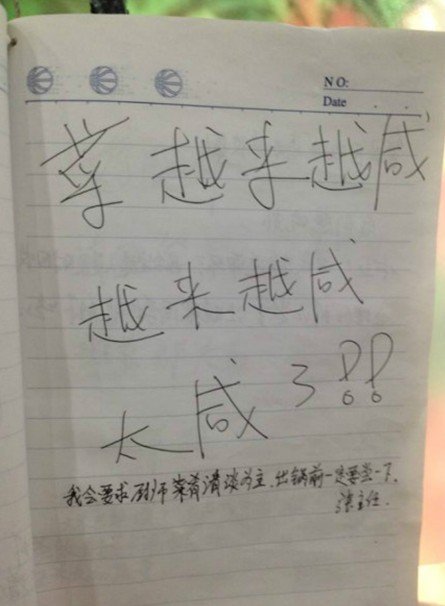 NO:
Date
菜 越来越咸
越来越咸
太咸了!!
我会要求厨师菜肴清淡为主.出锅前一定要尝一下.
主任.